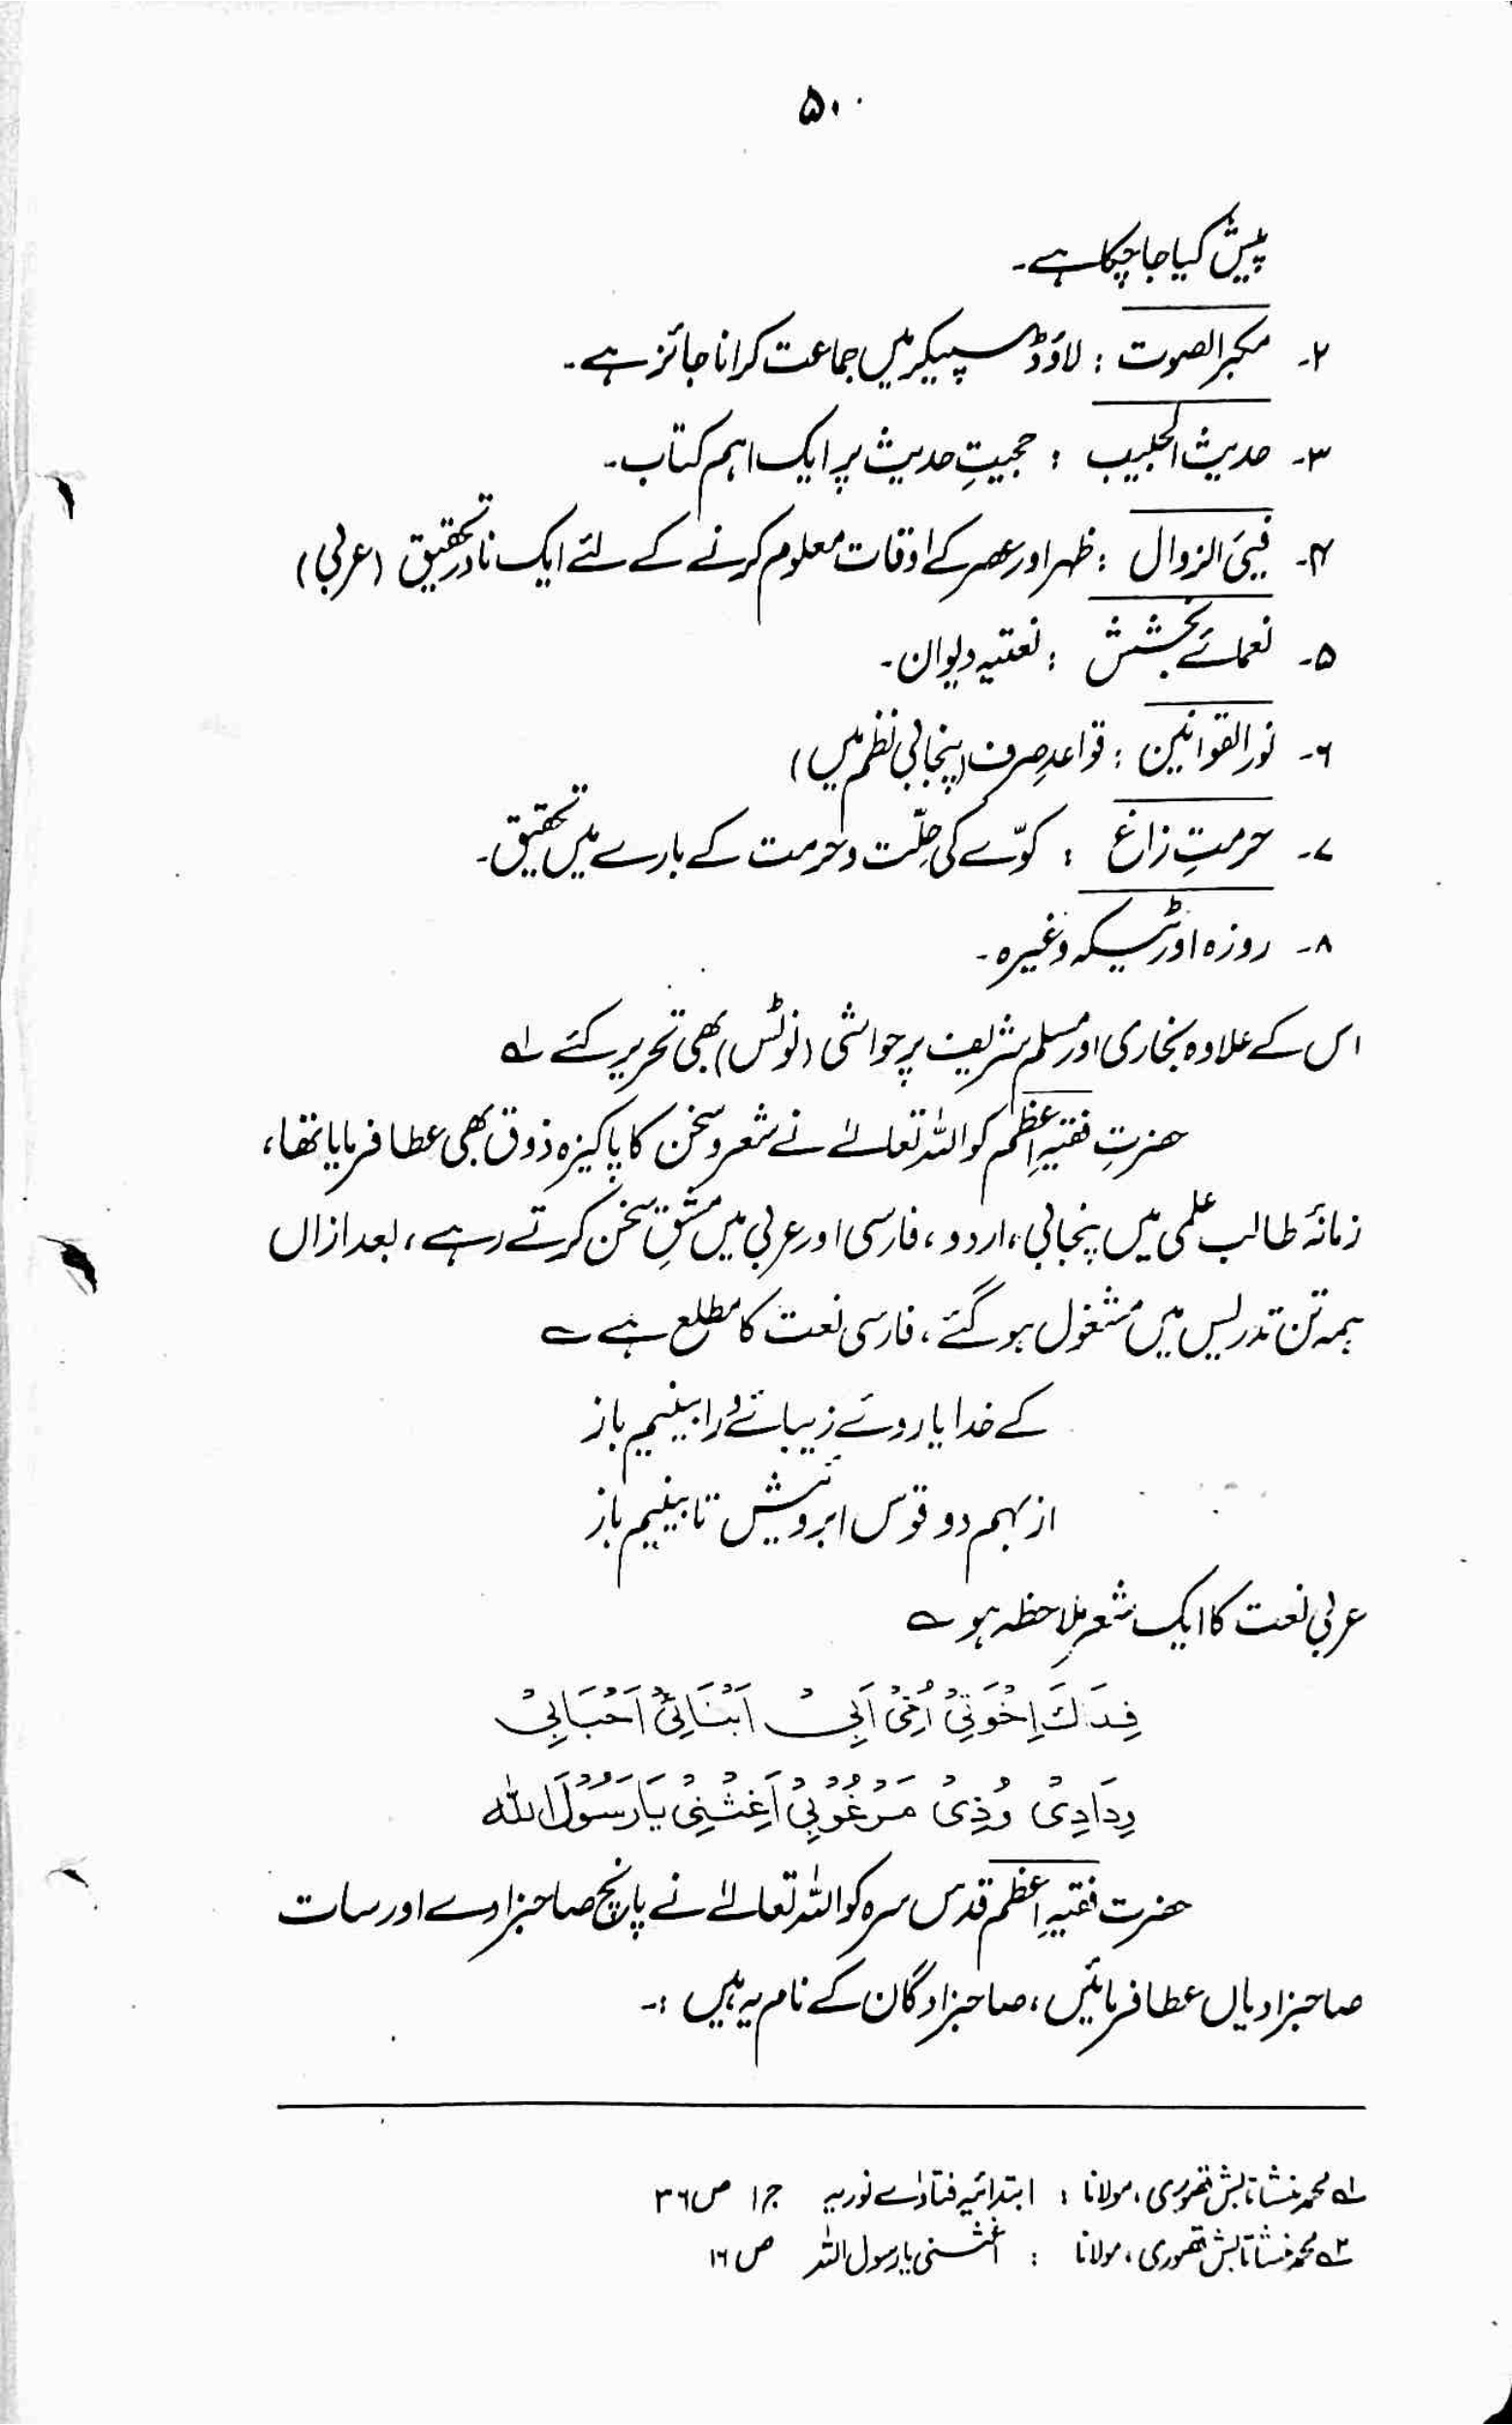 ۵۰
پیش کیا جا چکا ہے۔
۲۔ مکبر الصوت : لاؤڈ سپیکر میں جماعت کرانا جائز ہے۔
۳۔ حدیث الحبیب : حجیتِ حدیث پر ایک اہم کتاب۔
۴۔ فیئ الزوال : ظہر اور عصر کے اوقات معلوم کرنے کے لئے ایک نادر تحقیق (عربی)
۵۔ نعمائے بخشش : نعتیہ دیوان۔
۶۔ نور القوانین : قواعدِ صرف (پنجابی نظم میں)
۷۔ حرمتِ زاغ : کوّے کی حلّت و حرمت کے بارے میں تحقیق۔
۸۔ روزہ اور ٹیکہ وغیرہ۔
اس کے علاوہ بخاری اور مسلم شریف پر حواشی (نوٹس) بھی تحریر کئے ؎۱
حضرتِ فقیہِ اعظم کو اللہ تعالےٰ نے شعر و سخن کا پاکیزہ ذوق بھی عطا فرمایا تھا،
زمانۂ طالب علمی میں پنجابی، اردو، فارسی اور عربی میں مشقِ سخن کرتے رہے، بعد ازاں
ہمہ تن تدریس میں مشغول ہو گئے، فارسی نعت کا مطلع ہے ؎
کے خدایا روئے زیبائے ورا بینیم باز
از بہم دو قوس ابرویش تا بینیم باز
عربی نعت کا ایک شعر ملاحظہ ہو ؎
فِدَاكَ اِخْوَتِیْ اُمِّیْ اَبِیْ اَبْنَائِیْ اَحْبَابِیْ
وِدَادِیْ وُدِّیْ مَرْغُوْبِیْ اَغِثْنِیْ یَا رَسُوْلَ اللّٰہ
حضرت فقیہِ اعظم قدس سرہ کو اللہ تعالےٰ نے پانچ صاحبزادے اور سات
صاحبزادیاں عطا فرمائیں، صاحبزادگان کے نام یہ ہیں :۔
؎۱ محمد منشا تابش قصوری، مولانا : ابتدائیہ فتاوٰے نوریہ ج۱ ص ۳۶
؎۲ محمد منشا تابش قصوری، مولانا : اغثنی یا رسول اللہ ص ۱۶